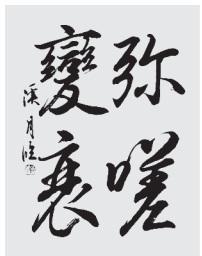 弥嗟
變衰
溪月